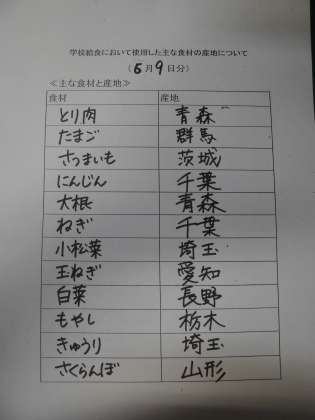 学校給食において使用した主な食材の産地について
（6月9日分）
≪主な食材と産地≫
食材 産地
とり肉 青森
たまご 群馬
さつまいも 茨城
にんじん 千葉
大根 青森
ねぎ 千葉
小松菜 埼玉
玉ねぎ 愛知
白菜 長野
もやし 栃木
きゅうり 埼玉
さくらんぼ 山形